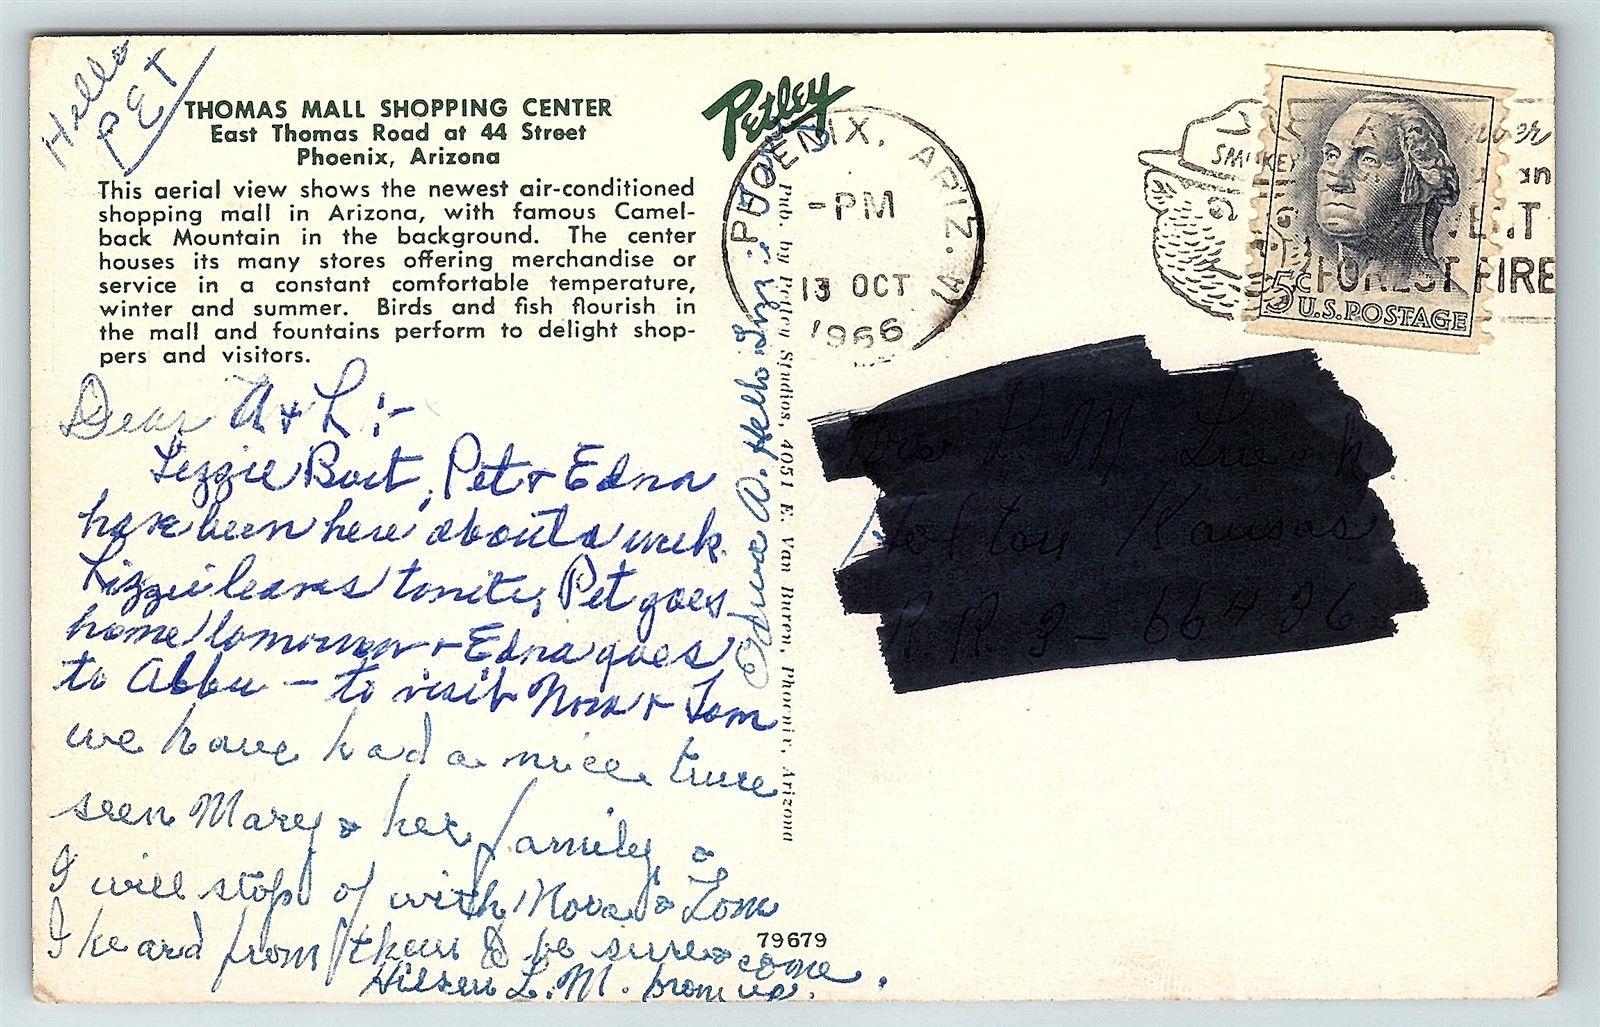 Hello
PET
THOMAS MALL SHOPPING CENTER
East Thomas Road at 44 Street
Phoenix, Arizona
This aerial view shows the newest air-conditioned
shopping mall in Arizona, with famous Camel-
back Mountain in the background. The center
houses its many stores offering merchandise or
service in a constant comfortable temperature,
winter and summer. Birds and fish flourish in
the mall and fountains perform to delight shop-
pers and visitors.
Dear A + L :-
Lizzie Pet + Edna
have been here about a week.
Lizzie leaves tonite, Pet goes
home tomorrow + Edna goes
to - to visit Nora + Tom
we have had a nice time
seen Mary & her family &
I will stop of with Nora & Tom
I heard from them & be sure & come.
L. M. from us.
Edna A. Hello
Petley
Pub. by Petley Studios, 4051 E. Van Buren, Phoenix, Arizona
79679
PHOENIX, ARIZ.
-PM
13 OCT
1966
SMOKEY
FOREST FIRE
5c U.S. POSTAGE
Kansas
66436